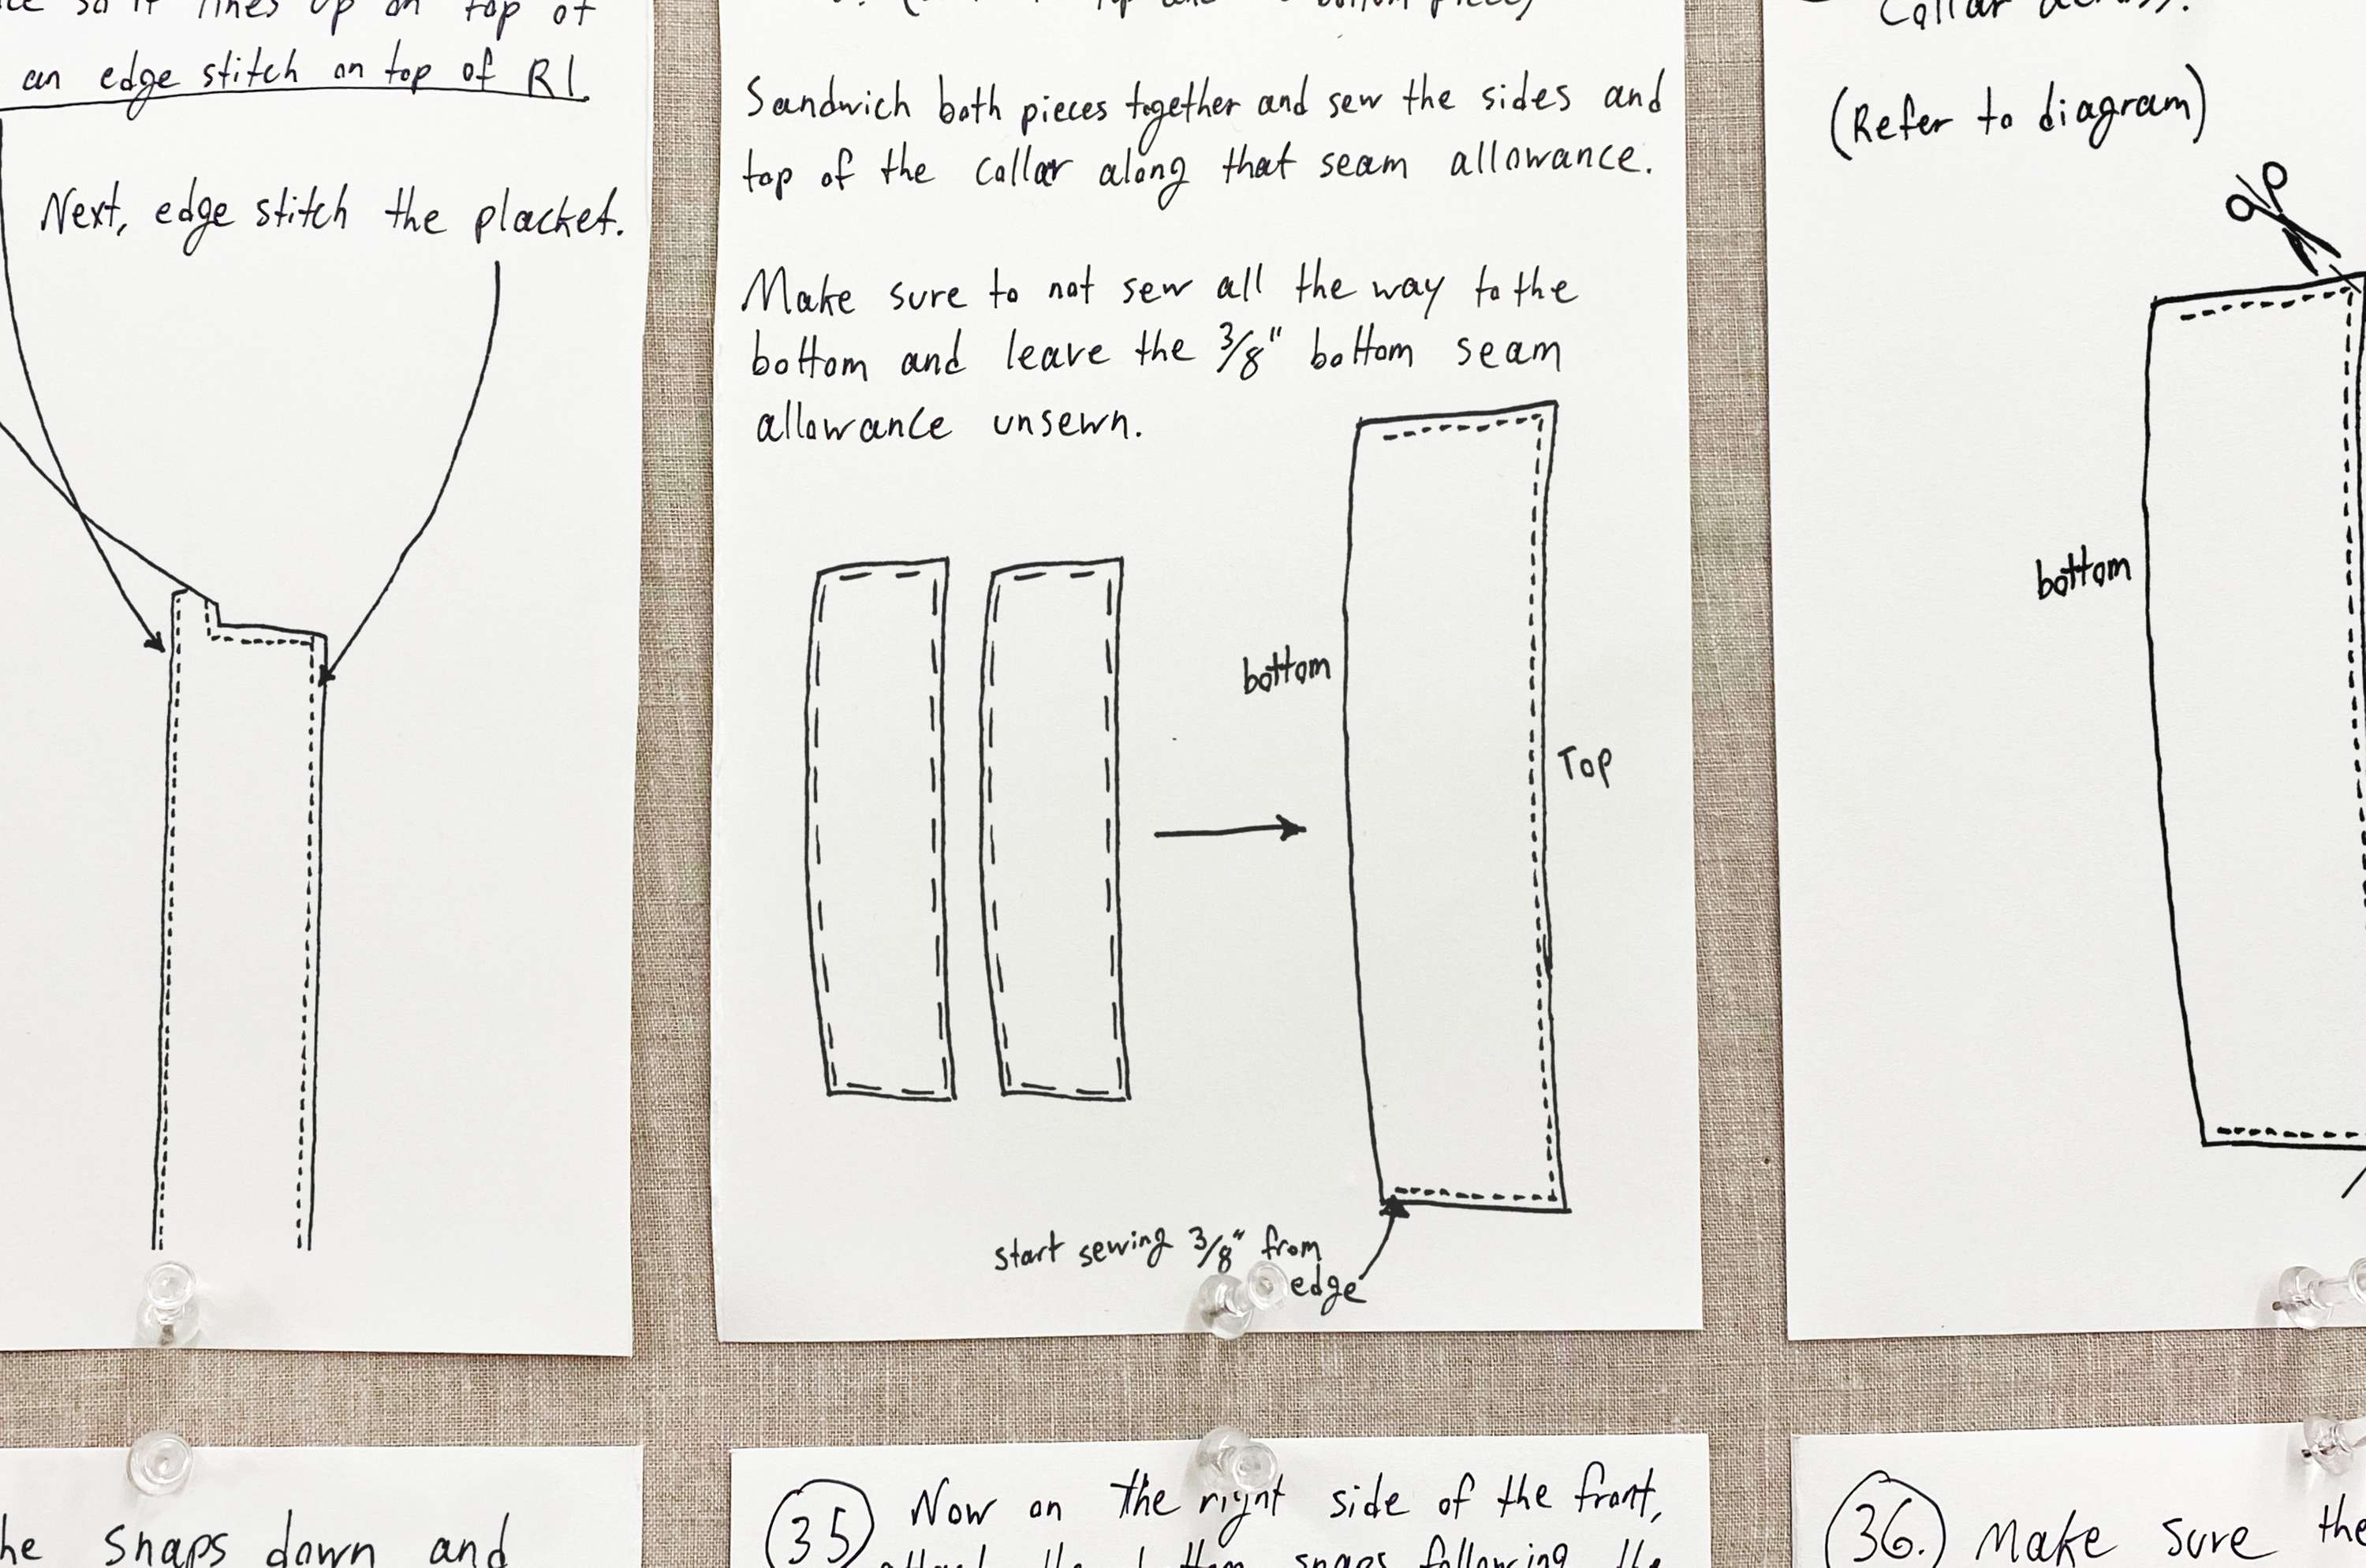 so it lines up on top of
an edge stitch on top of R1
Next, edge stitch the placket.
top bottom piece)
Sandwich both pieces together and sew the sides and
top of the collar along that seam allowance.
Make sure to not sew all the way to the
bottom and leave the 3/8" bottom seam
allowance unsewn.
bottom
Top
start sewing 3/8" from
edge
Collar across.
(Refer to diagram)
bottom
snaps down and
35 Now on the right side of the front,
snaps following the
36. Make sure the